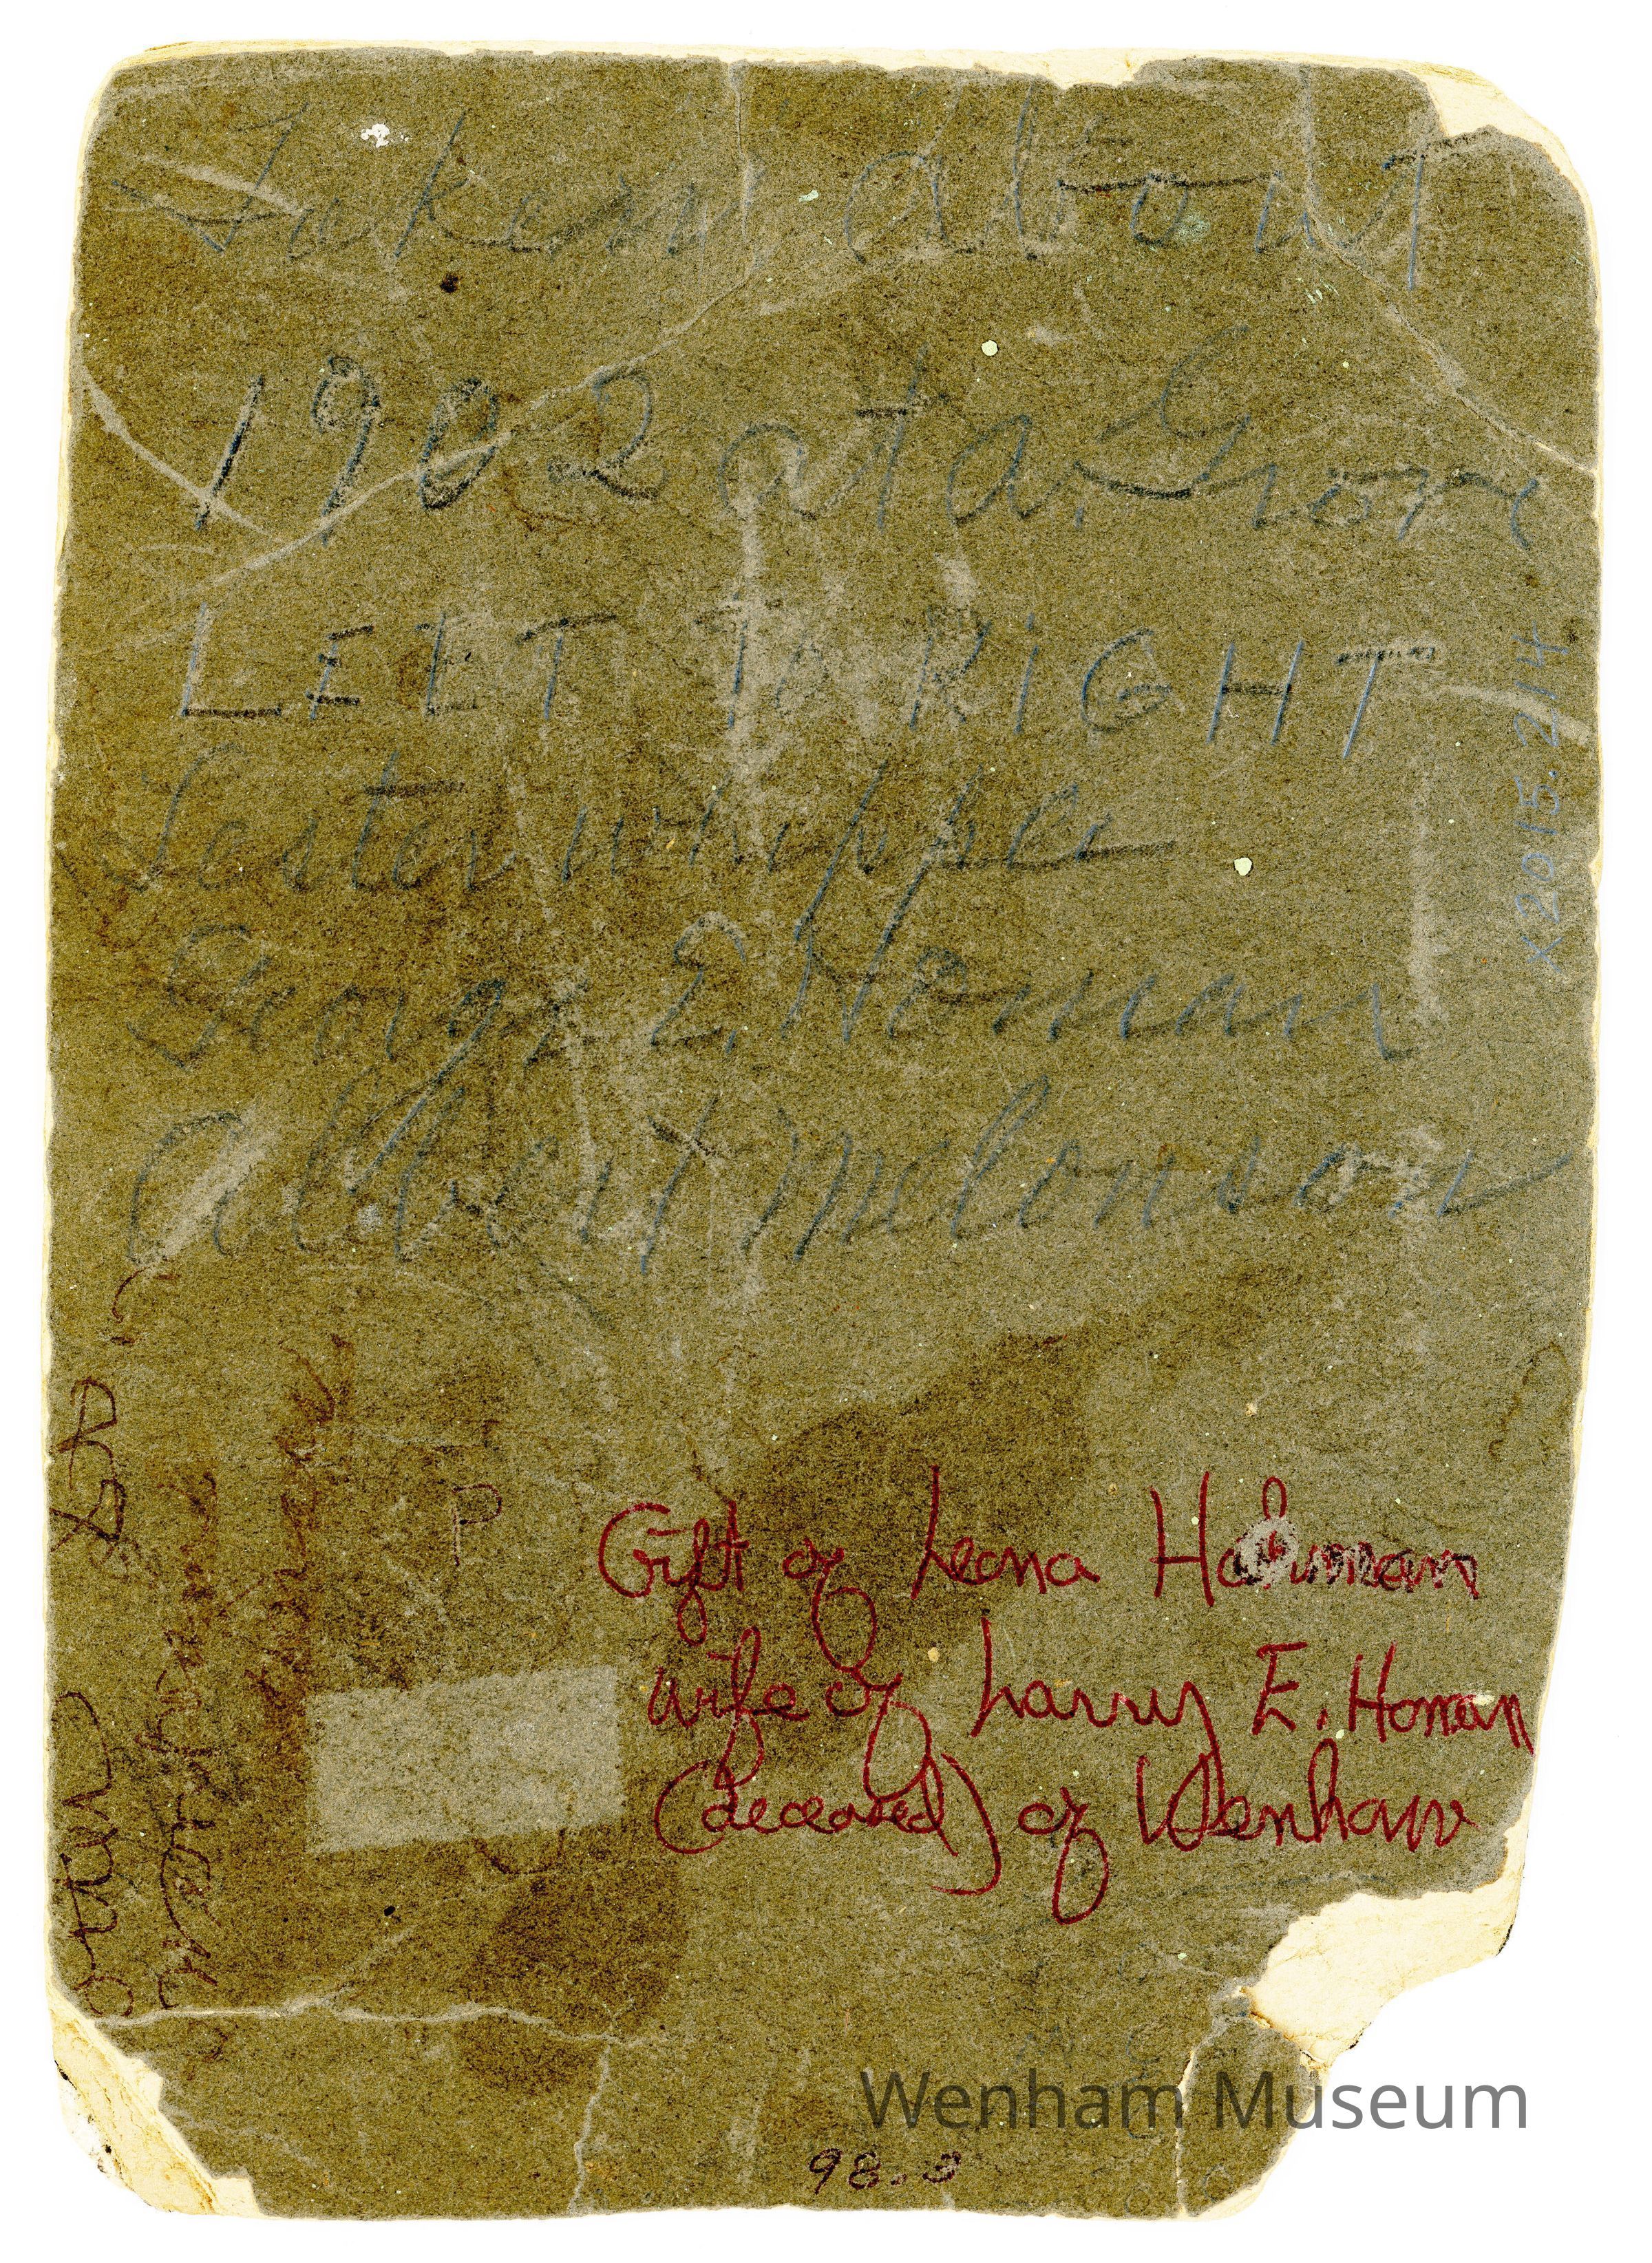 Taken about
1902 at a. Grove
LEFT To RiGHT
Lester whipple
George E. Homan
Albert Mclonson
X2015.214
P
Gift of Leona Homan
wife of Larry E. Homan
(deceased) of Wenham
Wenham Museum
98.3